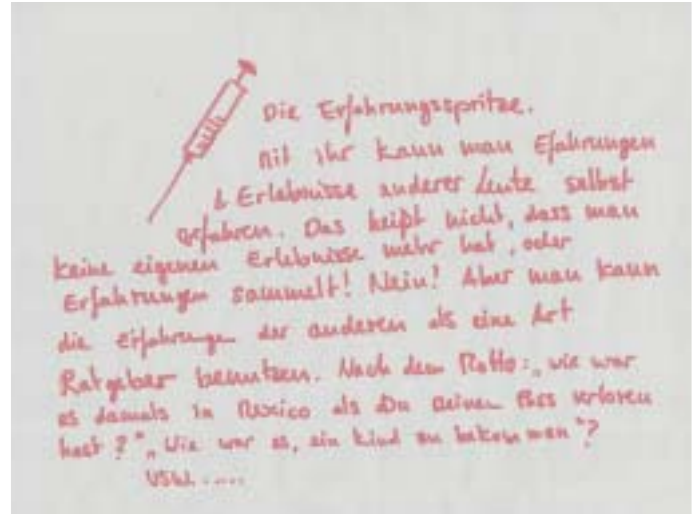 Die Erfahrungsspritze.
Mit ihr kann man Efahrungen
& Erlebnisse anderer Leute selbst
erfahren. Das heißt nicht, dass man
keine eigenen Erlebnisse mehr hat, oder
Erfahrungen sammelt! Nein! Aber man kann
die Erfahrungen der anderen als eine Art
Ratgeber benutzen. Nach dem Motto: „wie war
es damals in Mexico als Du Deinen Pass verloren
hast?" „Wie war es, ein Kind zu bekommen"?
USW.....